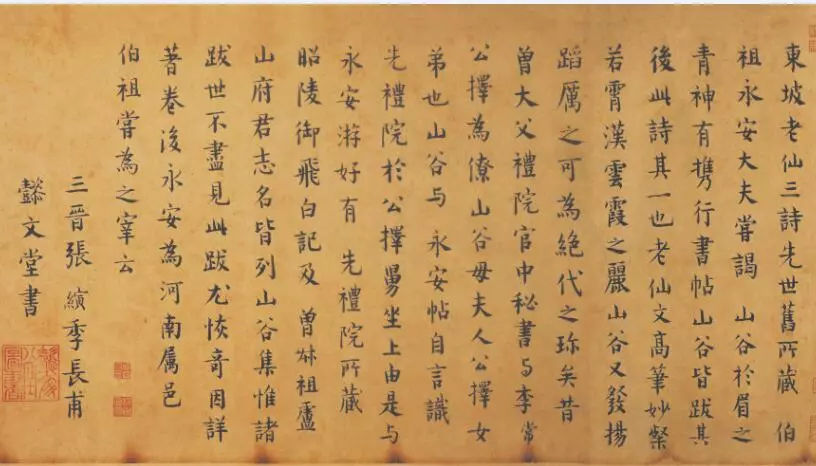 東坡老仙三詩先世舊所藏 伯
祖永安大夫嘗謁 山谷於眉之
青神有携行書帖山谷皆跋其
後此詩其一也老仙文高筆妙粲
若霄漢雲霞之麗山谷又發揚
蹈厲之可為絕代之珍矣昔
曾大父禮院官中秘書与李常
公擇為僚山谷母夫人公擇女
弟也山谷与 永安帖自言識
先禮院於公擇舅坐上由是与
永安游好有 先禮院所藏
昭陵御飛白記及 曾叔祖盧
山府君志名皆列山谷集惟諸
跋世不盡見此跋尤恢奇因詳
著卷後永安為河南屬邑
伯祖嘗為之宰云
三晉張縯季長甫
懿文堂書